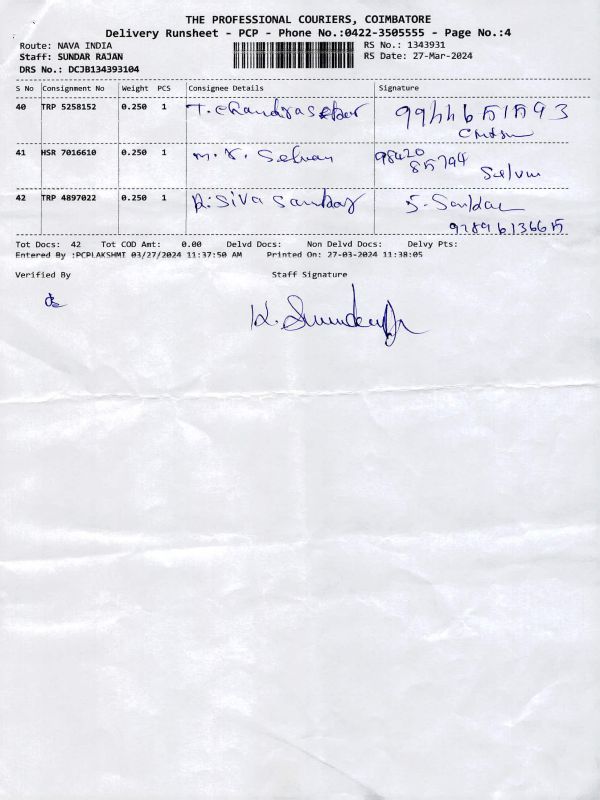 THE PROFESSIONAL COURIERS, COIMBATORE
Delivery Runsheet - PCP - Phone No.:0422-3505555 - Page No.:4
Route: NAVA INDIA
RS No.: 1343931
Staff: SUNDAR RAJAN
RS Date: 27-Mar-2024
DRS No.: DCJB134393104
S No Consignment No Weight PCS Consignee Details Signature
40 TRP 5258152 0.250 1 T. Chandrasekar
41 HSR 7016610 0.250 1 M. K. Selvan 98420
85794
Selvan
42 TRP 4897022 0.250 1 R. Siva Sankar S. Sankar
9789613665
Tot Docs: 42 Tot COD Amt: 0.00 Delvd Docs: Non Delvd Docs: Delvy Pts:
Entered By :PCPLAKSHMI 03/27/2024 11:37:50 AM Printed On: 27-03-2024 11:38:05
Verified By Staff Signature